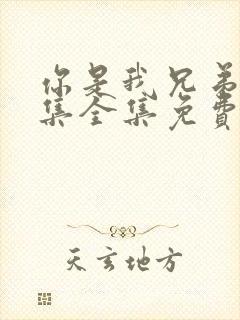 你是我兄弟
集全集免费
天玄地方